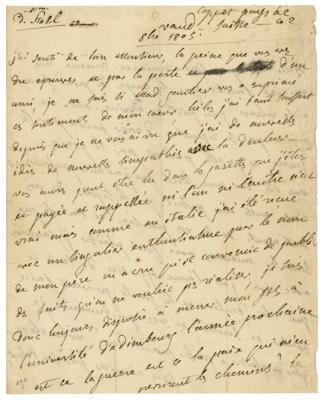 D. Stael
Coppet pays de
vaud suisse ce 2
8bre 1805
j'ai senti de loin Monsieur, la peine que vous avez
du eprouver par la perte d'un
ami je ne sais si Mad gautier vous a exprimé
ces sentiments de mon coeur helas j'ai tant souffert
depuis que je ne vous ai vu que j'ai de nouvelles
idées de nouvelles simpathies avec la douleur
vous avez peut etre lu dans les gazettes que j'étois
et rappellée ni l'un ni l'autre n'est
vrai mais comme en italie j'ai été recue
avec un singulier enthousiasme que le nom
de mon père m a cru de publier
des faits qu'on ne vouloit pas réaliser je suis
donc toujours disposée à mener mon fils à
l'université d'edimbourg l'année prochaine
est ce la guerre est ce la paix qui m'en
les chemins? la